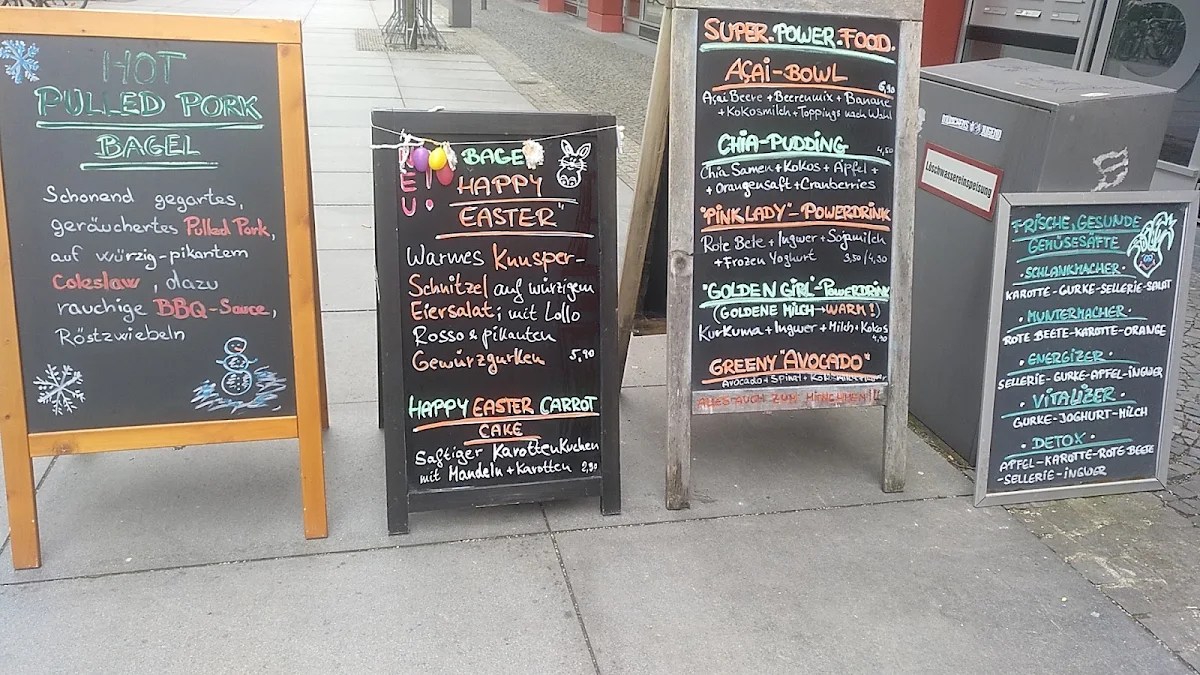 HOT
PULLED PORK
BAGEL
Schonend gegartes,
geräuchertes Pulled Pork,
auf würzig-pikantem
Coleslaw, dazu
rauchige BBQ-Sauce,
Röstzwiebeln
BAGEL
HAPPY
EASTER"
Warmes Knusper-
Schnitzel auf würzigem
Eiersalat; mit Lollo
Rosso & pikanten
Gewürzgurken 5,90
HAPPY EASTER CARROT
CAKE
Saftiger Karottenkuchen
mit Mandeln + Karotten 2,90
SUPER.POWER.FOOD.
AÇAI-BOWL
6,90
Açai Beere + Beerenmix + Banane
+ Kokosmilch + Toppings nach Wahl
CHIA-PUDDING 4,50
Chia Samen + Kokos + Apfel +
+ Orangensaft + Cranberries
"PINK LADY"-POWERDRINK
Rote Bete + Ingwer + Sojamilch
+ Frozen Yoghurt 3,50/4,90
"GOLDEN GIRL-POWERDRINK
(GOLDENE MILCH → WARM!)
Kurkuma + Ingwer + Milch + Kokos
4,90
GREENY "AVOCADO"
Avocado + Spinat +
ALLES AUCH ZUM MITNEHMEN!!!
Löschwassereinspeisung
FRISCHE, GESUNDE
GEMÜSESÄFTE
· SCHLANKMACHER ·
KAROTTE-GURKE-SELLERIE-SALAT
· MUNTERMACHER ·
ROTE BEETE-KAROTTE-ORANGE
· ENERGIZER ·
SELLERIE-GURKE-APFEL-INGWER
· VITALIZER ·
GURKE-JOGHURT-MILCH
· DETOX ·
APFEL-KAROTTE-ROTE BEETE
-SELLERIE-INGWER